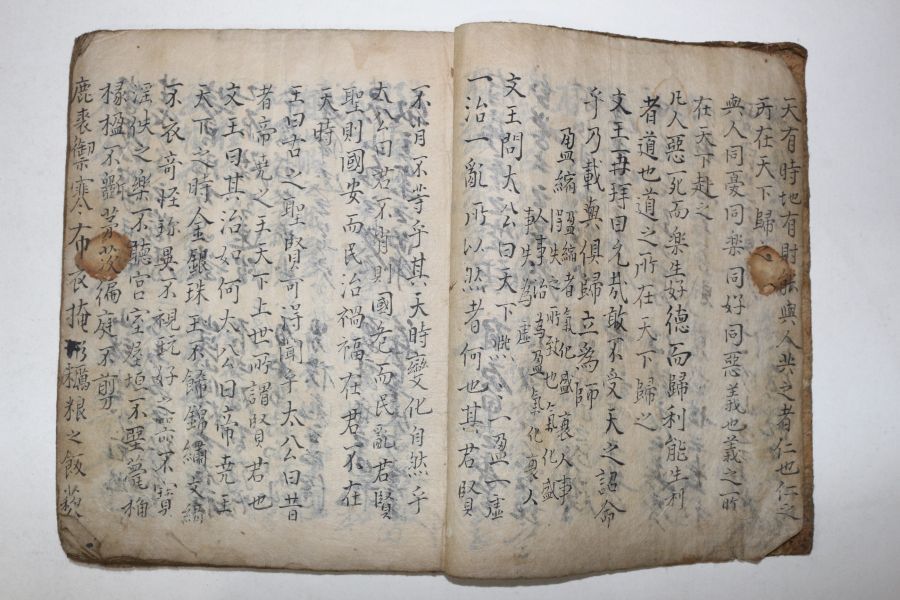 天有時地有財能與人共之者仁也仁之
所在天下歸之
與人同憂同楽同好同惡義也義之所
在天下赴之
凡人惡死而楽生好德而歸利能生利
者道也道之所在天下歸之
文王再拜曰允哉敢不受天之詔命
乎乃載與俱歸立為師
盈縮
盈縮者氣化盛衰人事
得失之所致也氣化盛
人事治為盈氣化衰人
事失為虛
文王問太公曰天下熙〻一盈一虛
一治一亂所以然者何也其君賢
不肖不等乎其天時變化自然乎
太公曰君不肖則國危而民亂君賢
聖則國安而民治禍福在君不在
天時
王曰古之聖賢可得聞乎太公曰昔
者帝堯之王天下上世所謂賢君也
文王曰其治如何太公曰帝堯王
天下之時金銀珠玉不餙錦繡文綺
不衣竒怪珎異不視玩好之器不寶
淫佚之樂不聽宮室垣不堊甍桷
椽楹不斲茅茨徧庭不剪
鹿裘禦寒布衣掩形糲粮之飯藜